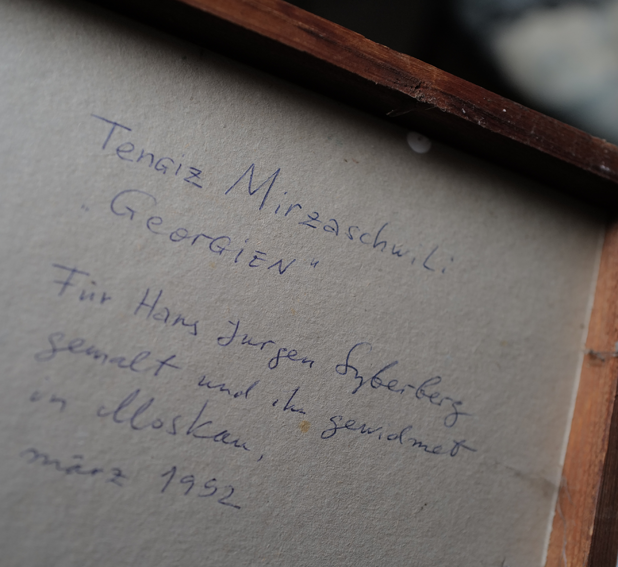 Tengiz Mirzaschwili
„Georgien"
Für Hans Jurgen Syberberg
gemalt und ihm gewidmet
in Moskau,
märz 1992